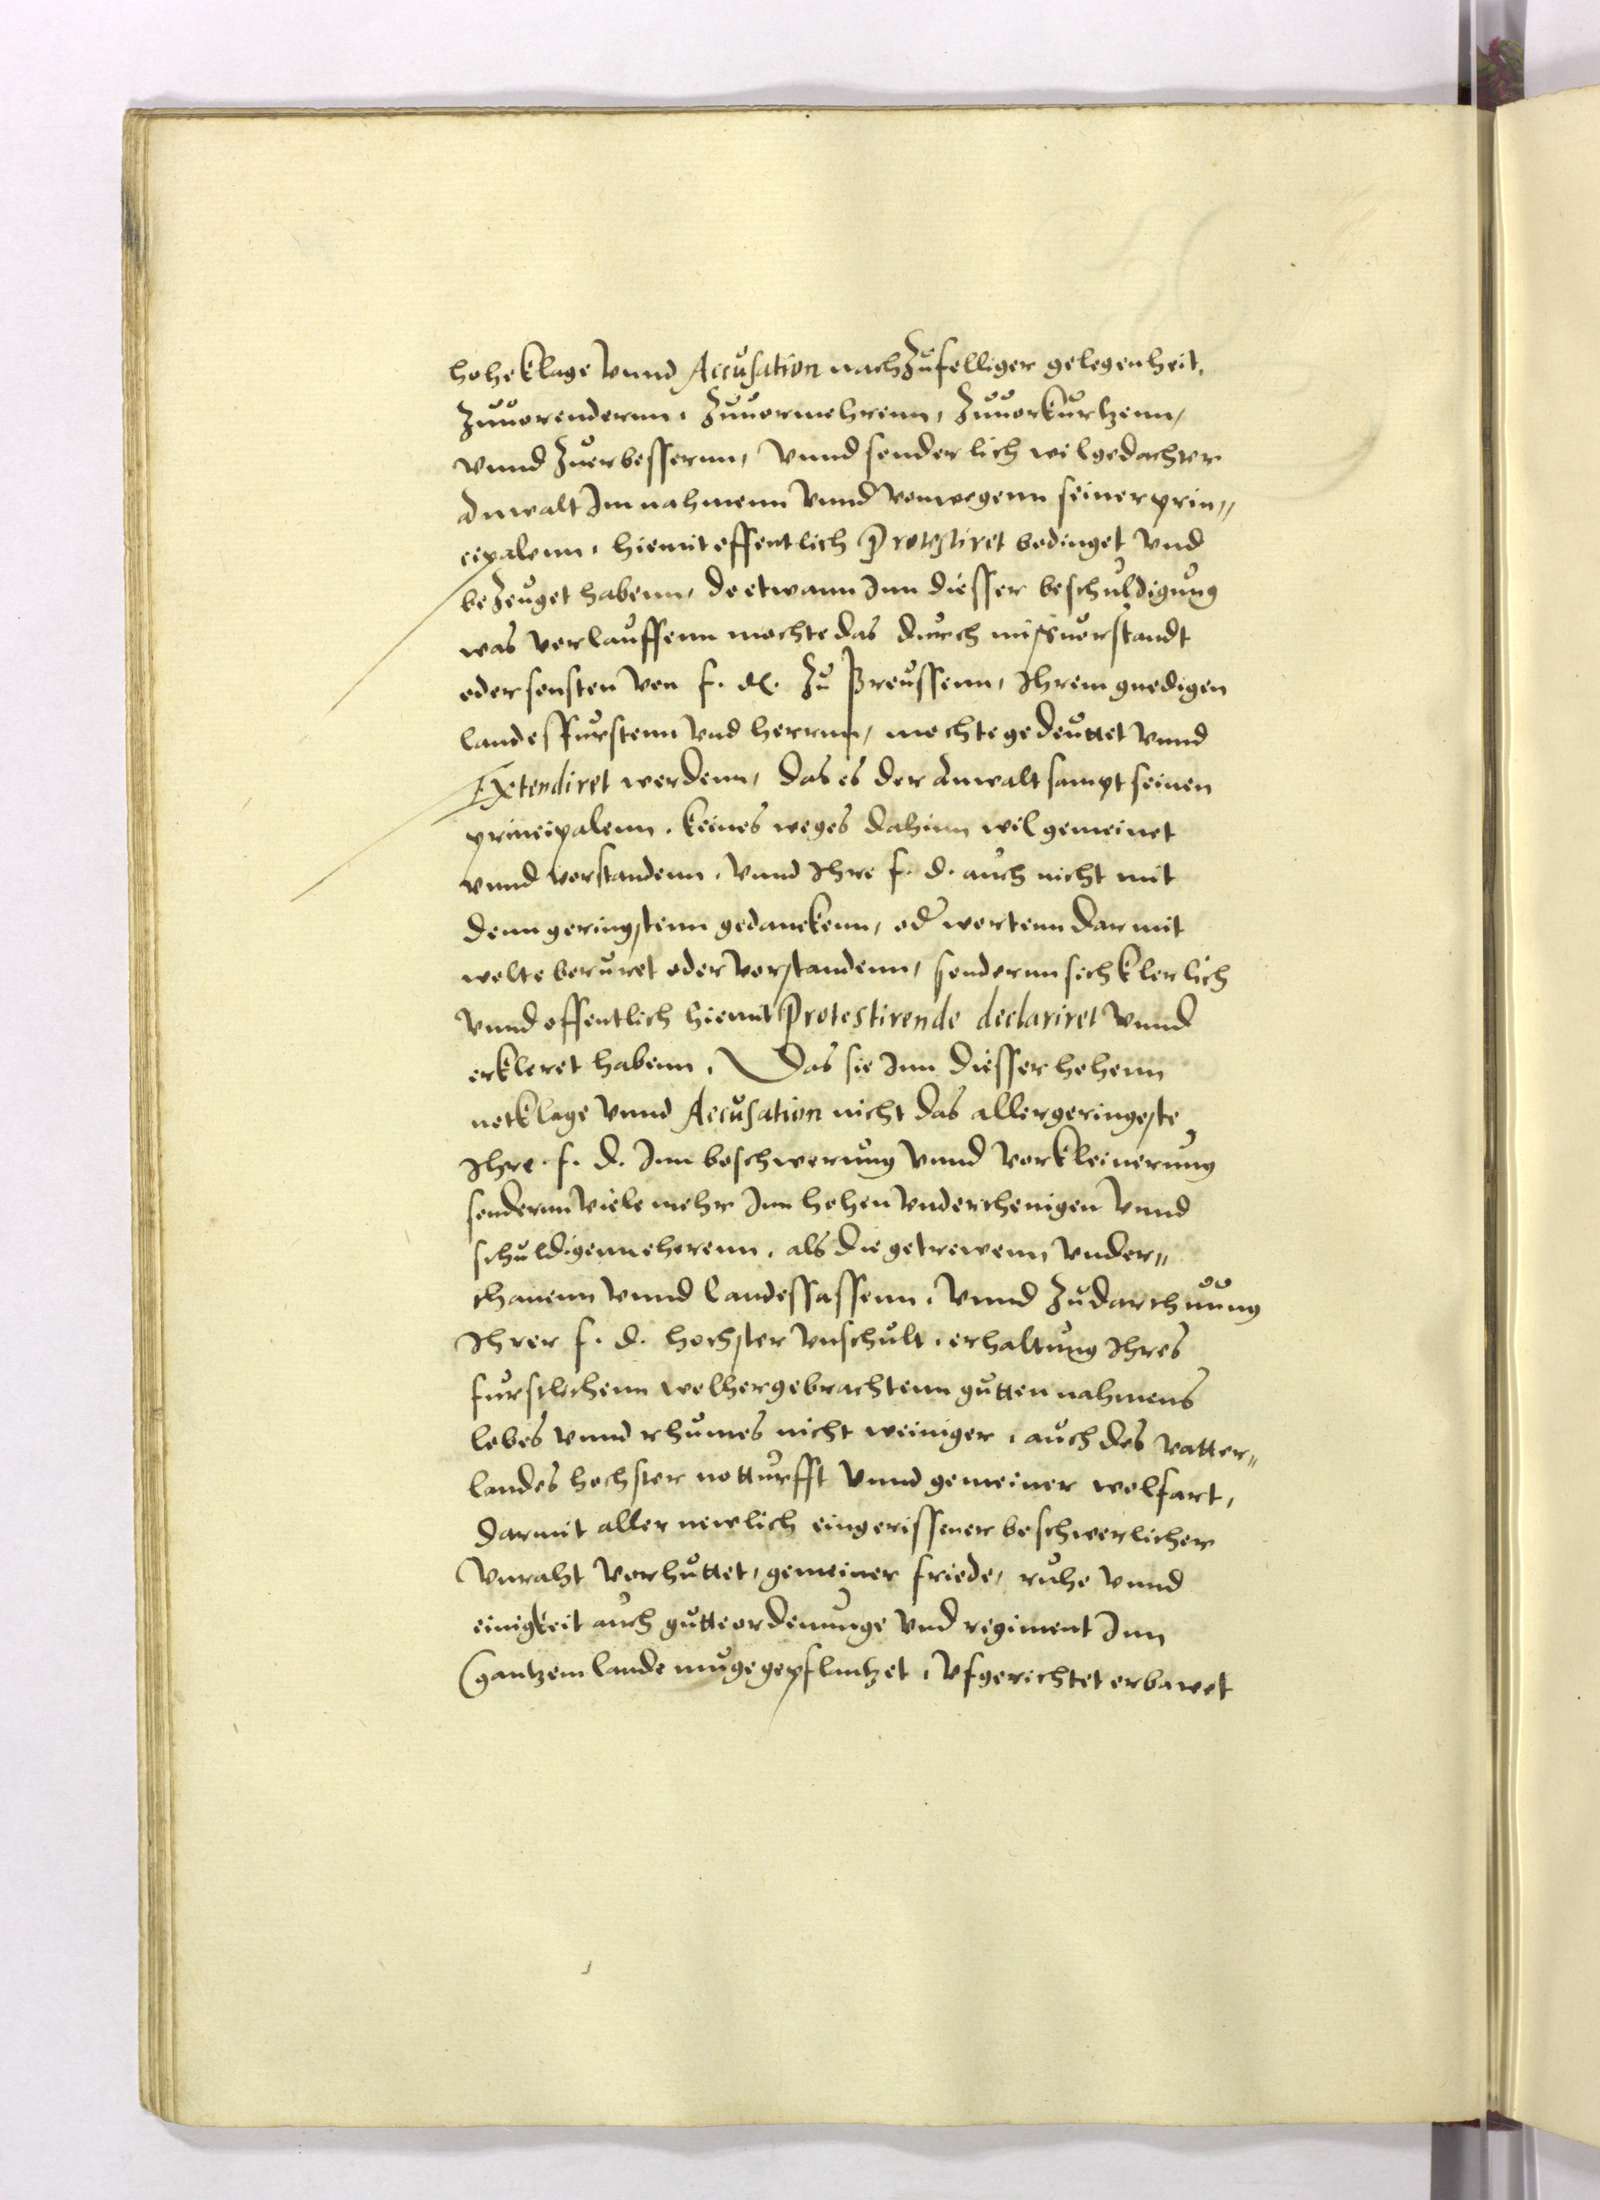 hohe klage vnnd Accusation nach zufelliger gelegenheit,
zuuorenderrnn, zuuormehrenn, zuuorkurtzenn,
vnnd zuerbesserrnn, vnnd sonderlich wolgedachter
Anwalt Im nahmenn vnnd vonwegenn seiner prin„
cipalenn, hiemit offentlich Protestiret bedinget vnd
bezeuget habenn, do etwann Inn diesser beschuldigung
was verlauffenn mochte das durch misuorstandt
oder sonsten von f. d. zu Preussenn, Ihrem gnedigen
landesfurstenn vnd herrnn, mochte gedeuttet vnnd
Extendiret werdenn, das es der Anwalt sampt seinen
principalenn, keines weges dahinn wil gemeinet
vnnd vorstandenn, vnnd Ihre f. d. auch nicht mit
denn geringstenn gedanckenn, oder wortenn darmit
wolte beruret oder vorstandenn, sonderrnn sich klerlich
vnnd offentlich hiemit Protestirende declariret vnnd
erkleret habenn, Das sie Inn diesser hohenn
notklage vnnd Accusation nicht das allergeringeste
Ihre f. d. Inn beschwerung vnnd vorkleinerung
sonderrnn viele mehr Inn hohen vnderthenigen vnnd
schuldigenn eherenn, als die getrewenn vnder„
thanenn vnnd landessassenn, vnnd zu darthuung
Ihrer f. d. hochster vnschult, erhaltung Ihres
furstlichenn wolhergebrachtenn gutten nahmens
lobes vnnd rhumes nicht weiniger, auch des vatter„
landes hochster notturfft vnnd gemeiner wolfart,
darmit aller newlich eingerissener beschwerlicher
vnraht verhuttet, gemeiner friede, ruhe vnnd
einigkeit auch gutte ordenunge vnd regiment Inn
gantzem lande muge gepflantzet, vfgerichtet erbawet